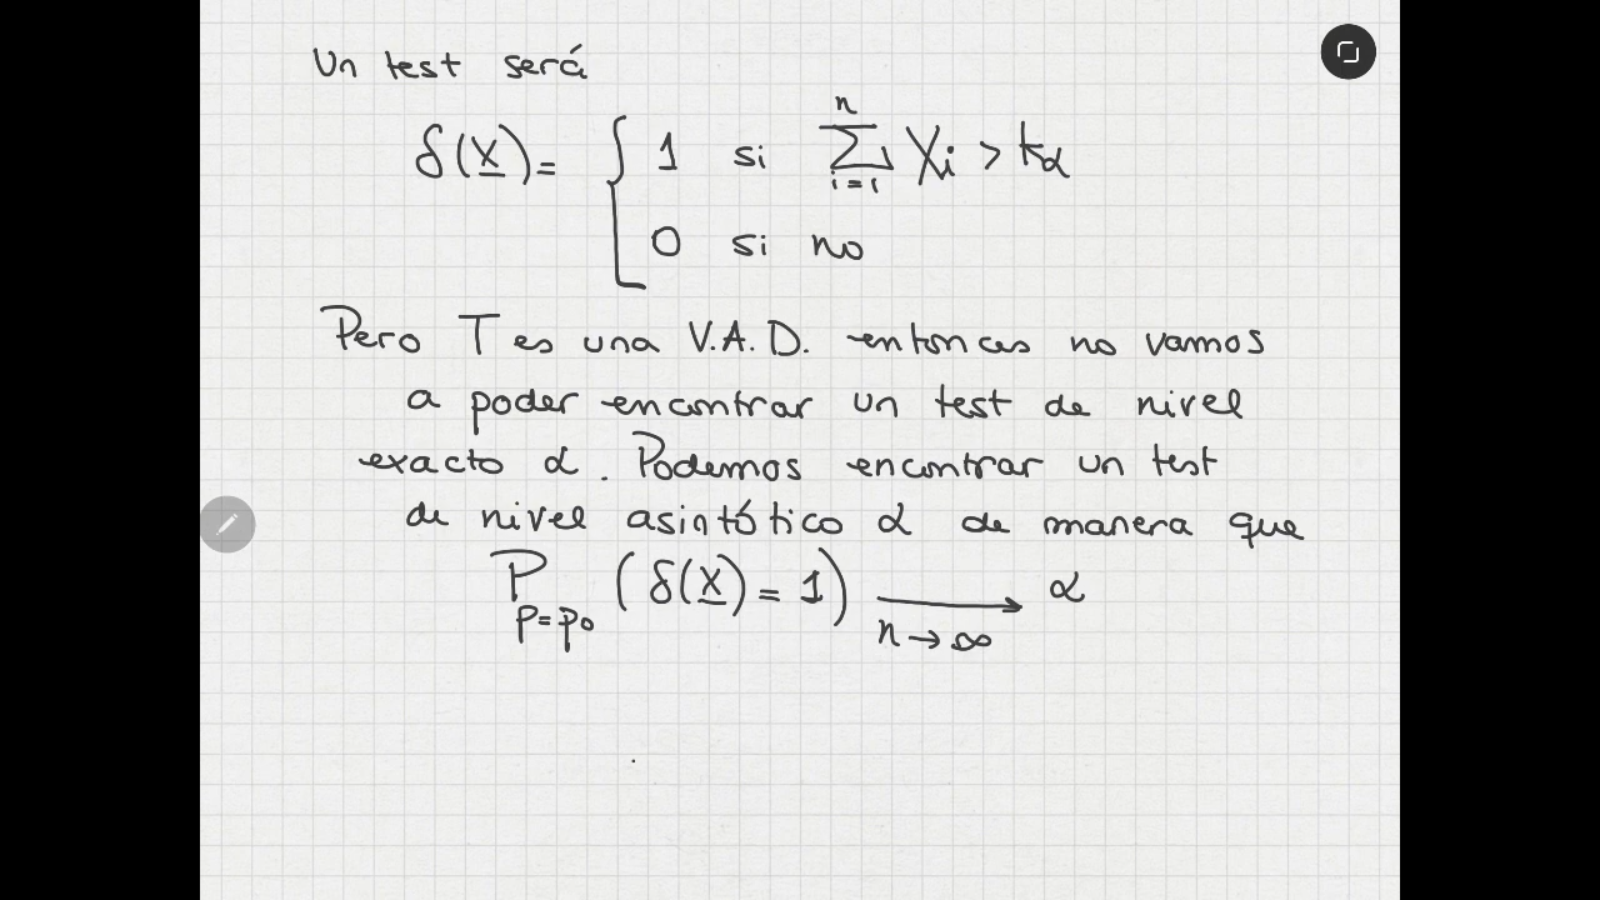 Un test será
δ(X) = { 1 si \sum_{i=1}^{n} X_i > k_α
0 si no
Pero T es una V.A.D. entonces no vamos
a poder encontrar un test de nivel
exacto α. Podemos encontrar un test
de nivel asintótico α de manera que
P_{p=p_0} (δ(X) = 1) ⟶_{n→∞} α